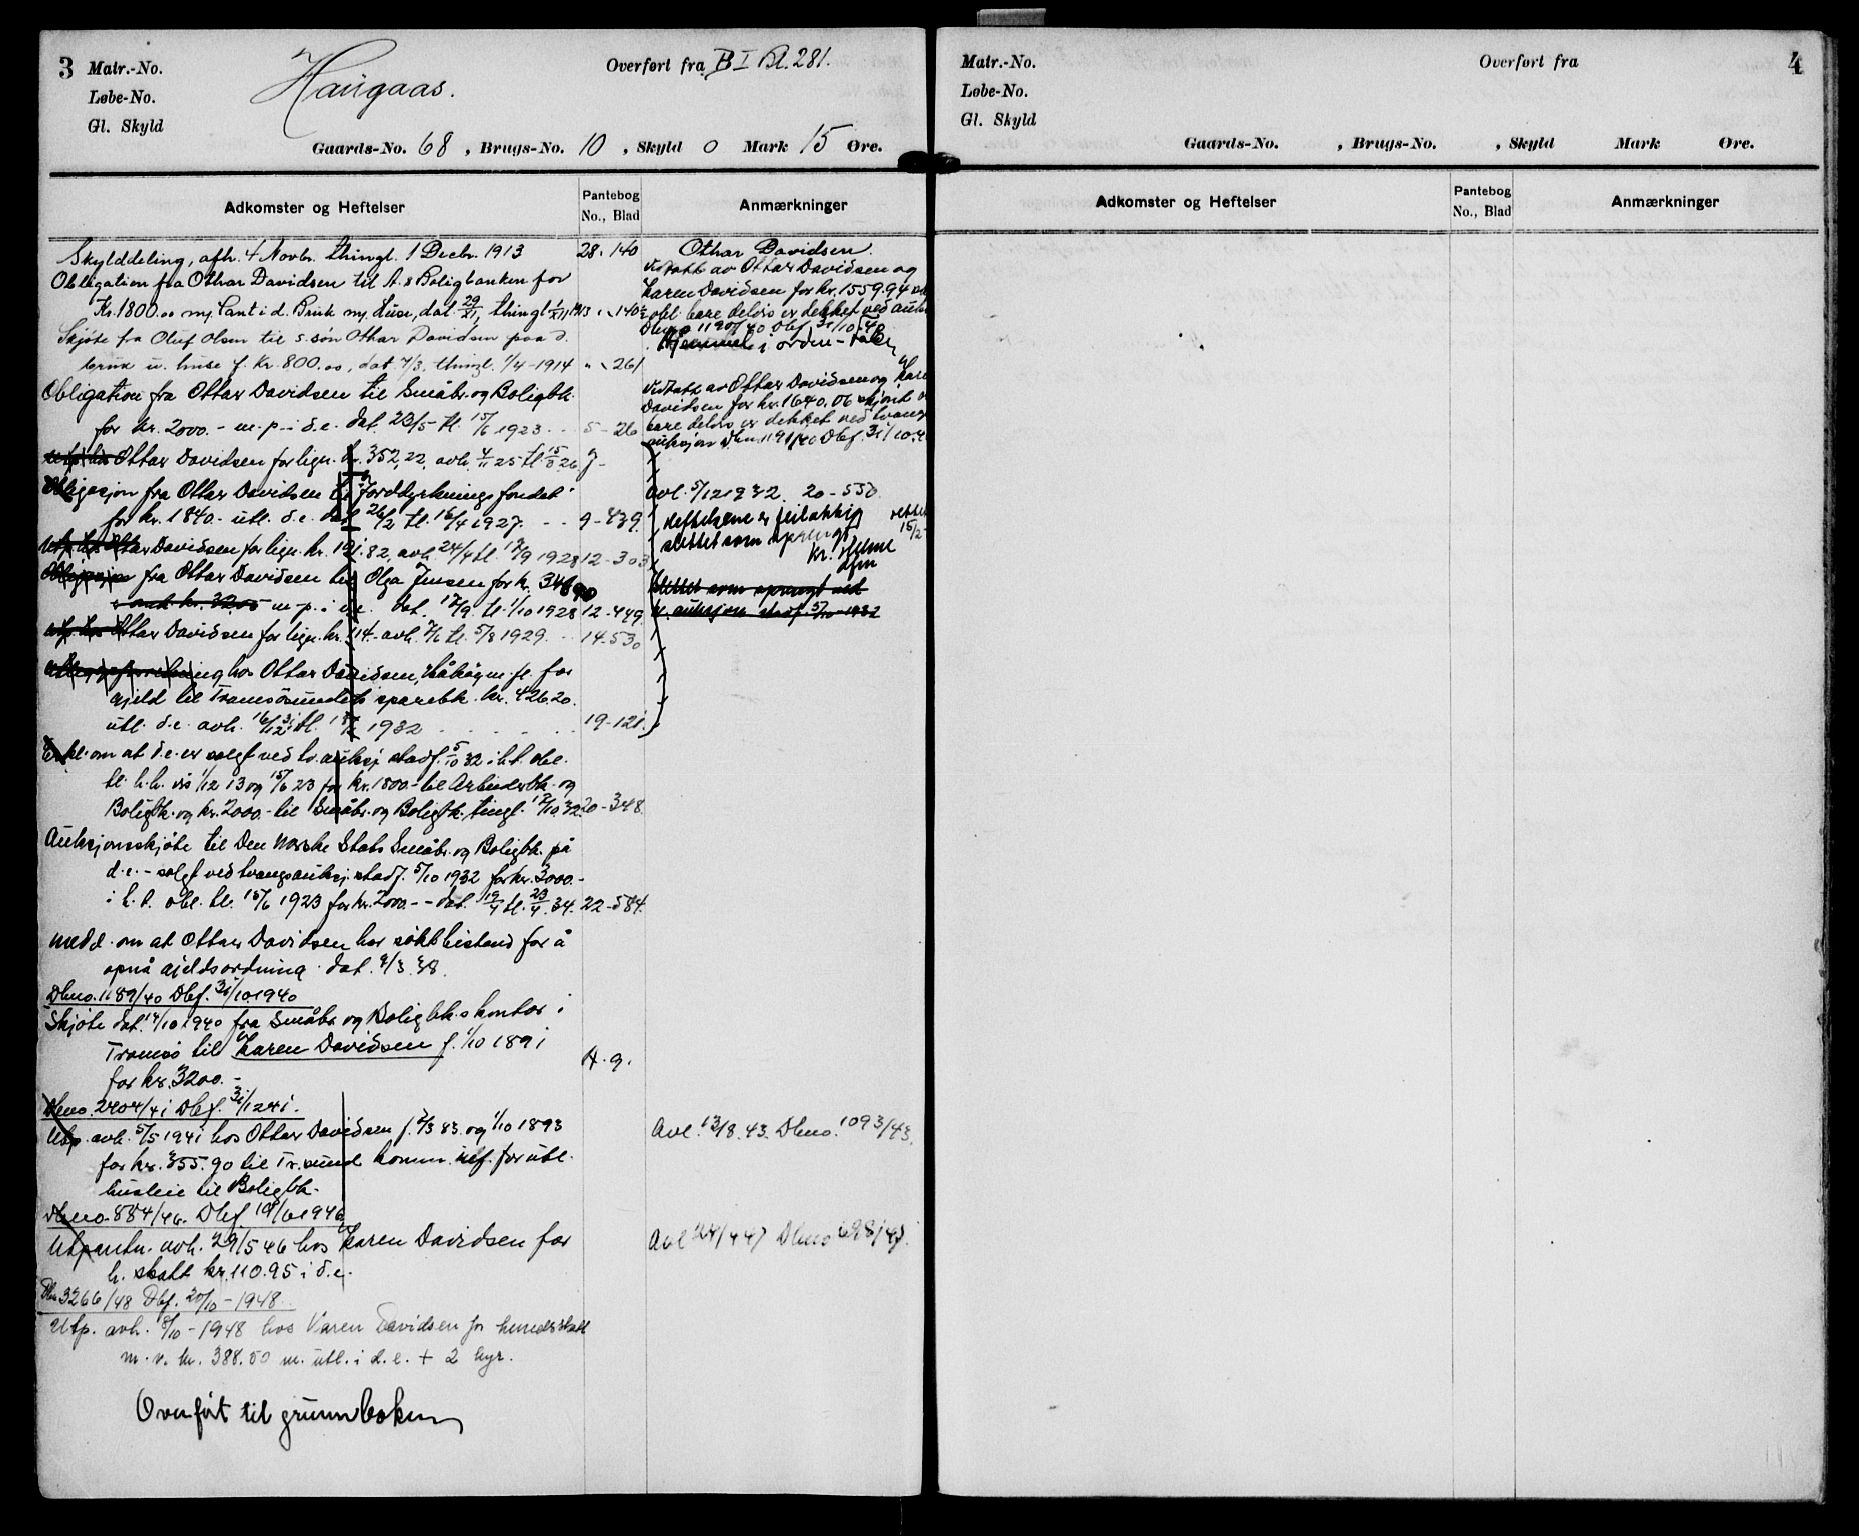 3
Matr.-No.
Løbe-No.
Gl. Skyld
Haugaas.
Overført fra B I Bl. 281.
Gaards-No. 68, Brugs-No. 10, Skyld 0 Mark 15 Øre.
Adkomster og Heftelser
Pantebog
No., Blad
Anmærkninger
Skylddeling, afh. 4 Novbr. thingl. 1 Decbr. 1913 28. 140
Obligation fra Othar Davidsen til A. & Boligbanken for
Kr. 1800.00 m/ Pant i d. Bruk m/ huse, dat 29/11, thingl
Skjøte fra Oluf Olsen til s. søn Othar Davidsen paa d.
bruk u. huse f. Kr. 800.00, dat. 7/3, thingl. 1/4 - 1914 " 261
Obligation fra Ottar Davidsen til Småbr. og Boligbk.
for kr. 2000.- m. p. i d.e. dat. 23/5 tl. 15/6 1923 5 - 26
Ottar Davidsen for lign. kr. 352,22, avh. 4/11 25 tl. 7-
Obligasjon fra Ottar Davidsen til Jorddyrkningsfondet
for kr. 1840.- utl. d.e. dat. 26/2 tl. 16/4 1927. 9-439.
Utp. hos Ottar Davidsen for lign. kr. 191.82, avh. 24/4 tl. 1928 12-303
Obligasjon fra Ottar Davidsen til Olga Jensen for kr.
m. p. i d.e. dat. 17/9. tl. 1/10 1928 12-449.
utp. hos Ottar Davidsen for lign. kr. 114.- avh. tl. 5/8 1929. 14-530
hos Ottar Davidsen, Håkøy m. fl. for
gjeld til Tromsøsundets sparebk. kr. 426.20.
utl. d.e. avh. 16/12 31 tl. 1932 19-121.
Erkl. om at d.e. er solgt ved tv. auksj. stadf. 5/10 32 i h.t. obl.
tl. h.h. vis 1/12 13 og 15/6 23 for kr. 1800.- til Arbruderbk. og
Boligbk. og kr. 2000.- til Småbr. og Boligbk., tingl. 20-348.
Auksjonsskjøte til Den Norske Stats Småbr. og Boligbk. på
d.e. - solgt ved tvangsauksj. stadf. 5/10 1932 for kr. 3000.-
i h.t. obl. tl. 15/6 1923 for kr. 2000.- - dat. 19/4 tl. 23/4. 34. 22-584.
Medd. om at Ottar Davidsen har søkt bistand for å
opnå gjeldsordning. dat. 9/3. 38.
Dbno. 1189/40 Dbf. 31/10 1940
Skjøte dat. 14/10 1940 fra Småbr. og Boligbk.s kontor i
Tromsø til Karen Davidsen f. 1/10 1891 H. 9.
for kr. 3200.-
Dbno. 2404/41 Dbf. 31/12 41.
Utp. avh. 5/5 1941 hos Ottar Davidsen f. 7/3 83. og 1/10 1893
for kr. 355.90 til Tr.sund komm. ulf. for utl.
husleie til Boligbk.
Dbno. 884/46. Dbf. 19/6 1946
Utpantn. avh. 29/5 46 hos Karen Davidsen for
h. skatt kr. 110.95 i d.e.
Dbn 3266/48 Dbf. 20/10 - 1948.
Utp. avh. 8/10 - 1948 hos Karen Davidsen for hundeskatt
m.v. kr. 388.50 m. utl. i d.e. + 2 dyr.
Overført til grunnboken
Othar Davidsen.
Vedtatt av Ottar Davidsen og
Karen Davidsen for kr. 1559.94
obl. bare delvis er dekket ved
Dbno 1190/40 Dbf. 31/10 40
Hjemmel i orden -
Vedtatt av Ottar Davidsen og Karen
Davidsen for kr. 1640.06 skjønt
bare delvis er dekket ved tvangs
auksjon Dbn. 1191/40 Dbf. 31/10.4
Avl. 5/12 1932. 20-550
Heftelsene er feilaktig
slettet som sprengt
kr. Helme
Slettet som sprengt ved
tv. auksjon stadf. 5/10 1932
Avl. 13/8. 43. Dbno. 1093/43.
Avl 24/4 47 Dbno 698/47.
Matr.-No.
Løbe-No.
Gl. Skyld
Overført fra
4
Gaards-No. , Brugs-No. , Skyld Mark Øre.
Adkomster og Heftelser
Pantebog
No., Blad
Anmærkninger